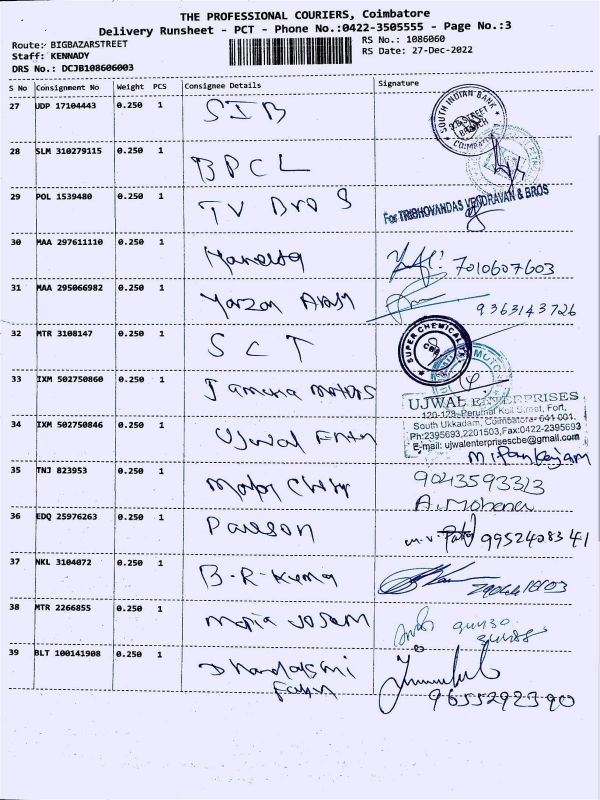 THE PROFESSIONAL COURIERS, Coimbatore
Delivery Runsheet - PCT - Phone No.:0422-3505555 - Page No.:3
Route:- BIGBAZARSTREET
RS No.: 1086060
Staff: KENNADY
RS Date: 27-Dec-2022
DRS No.: DCJB108606003
S No Consignment No Weight PCS Consignee Details Signature
27 UDP 17104443 0.250 1 SIB
SOUTH INDIAN BANK
B.B.STREET
BRANCH
COIMBATORE
28 SLM 310279115 0.250 1 BPCL
29 POL 1539480 0.250 1 TV Bros
For TRIBHOVANDAS VENDRAVAN & BROS
30 MAA 297611110 0.250 1
7010607603
31 MAA 295066982 0.250 1
9363143726
32 MTR 3108147 0.250 1 SCT
SUPER CHEMICAL
CBE
33 IXM 502750860 0.250 1 Jamuna motors
34 IXM 502750846 0.250 1 Ujwal Entr
UJWAL ENTERPRISES
120-129, Perumal Koil Street, Fort,
South Ukkadam, Coimbatore- 641 001.
Ph:2395693,2201503,Fax:0422-2395693
E-mail: ujwalenterprisescbe@gmail.com
M. Pankajam
35 TNJ 823953 0.250 1
9043593323
36 EDQ 25976263 0.250 1
9952408341
37 NKL 3104072 0.250 1 B.R.Kuma
38 MTR 2266855 0.250 1 Maria Josem
39 BLT 100141908 0.250 1
9655292390